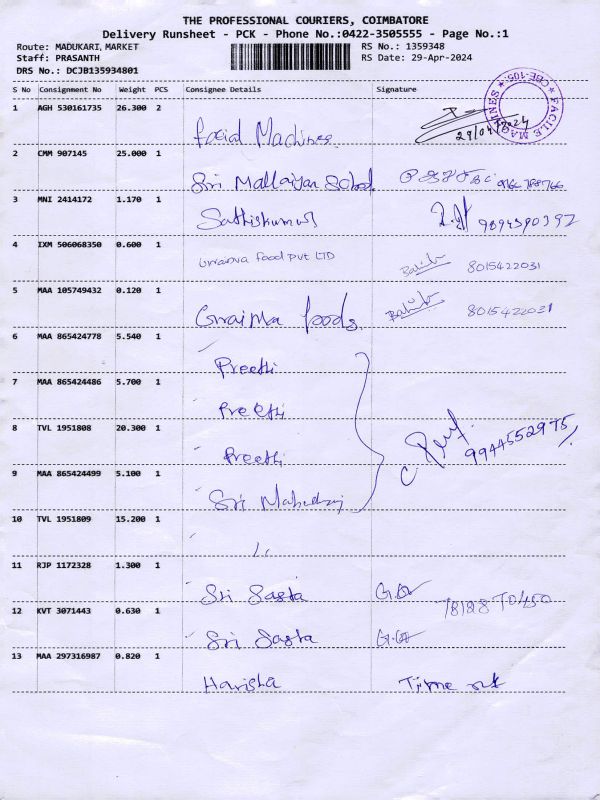 THE PROFESSIONAL COURIERS, COIMBATORE
Delivery Runsheet - PCK - Phone No.:0422-3505555 - Page No.:1
Route: MADUKARI,MARKET RS No.: 1359348
Staff: PRASANTH RS Date: 29-Apr-2024
DRS No.: DCJB135934801
S No Consignment No Weight PCS Consignee Details Signature
1 AGH 530161735 26.300 2
Machines 29/04/2024
FACILE MACHINES CBE-105
2 CMM 907145 25.000 1
Sri School
3 MNI 2414172 1.170 1
Sathiskumar 9894590392
4 IXM 506068350 0.600 1
Food Pvt LTD 8015422031
5 MAA 105749432 0.120 1
foods 8015422031
6 MAA 865424778 5.540 1
Preethi
7 MAA 865424486 5.700 1
Preethi
8 TVL 1951808 20.300 1
Preethi 9944552975
9 MAA 865424499 5.100 1
Sri
10 TVL 1951809 15.200 1
11 RJP 1172328 1.300 1
Sri Sasta
12 KVT 3071443 0.630 1
Sri Sasta
13 MAA 297316987 0.820 1
Harisha Time